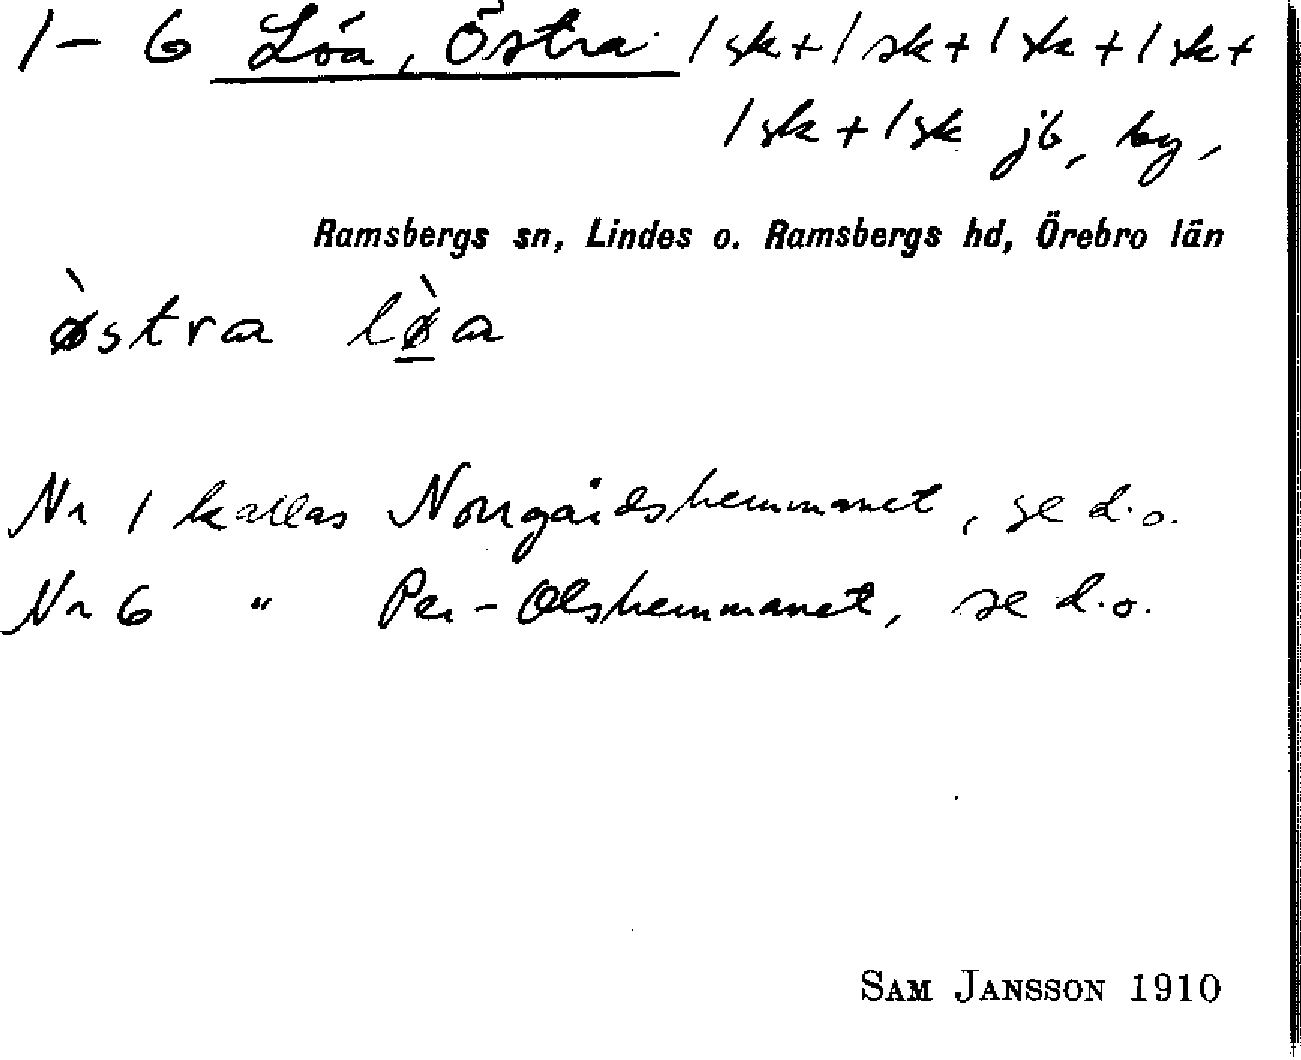 1-6 Löa, Östra 1 sk + 1 sk + 1 sk + 1 sk +
1 sk + 1 sk jb, by,
Ramsbergs sn, Lindes o. Ramsbergs hd, Örebro län
ø̀stra lø̲̀a
Nr 1 kallas Norrgårdshemmanet, se d.o.
Nr 6 " Per-Olshemmanet, se d.o.
SAM JANSSON 1910